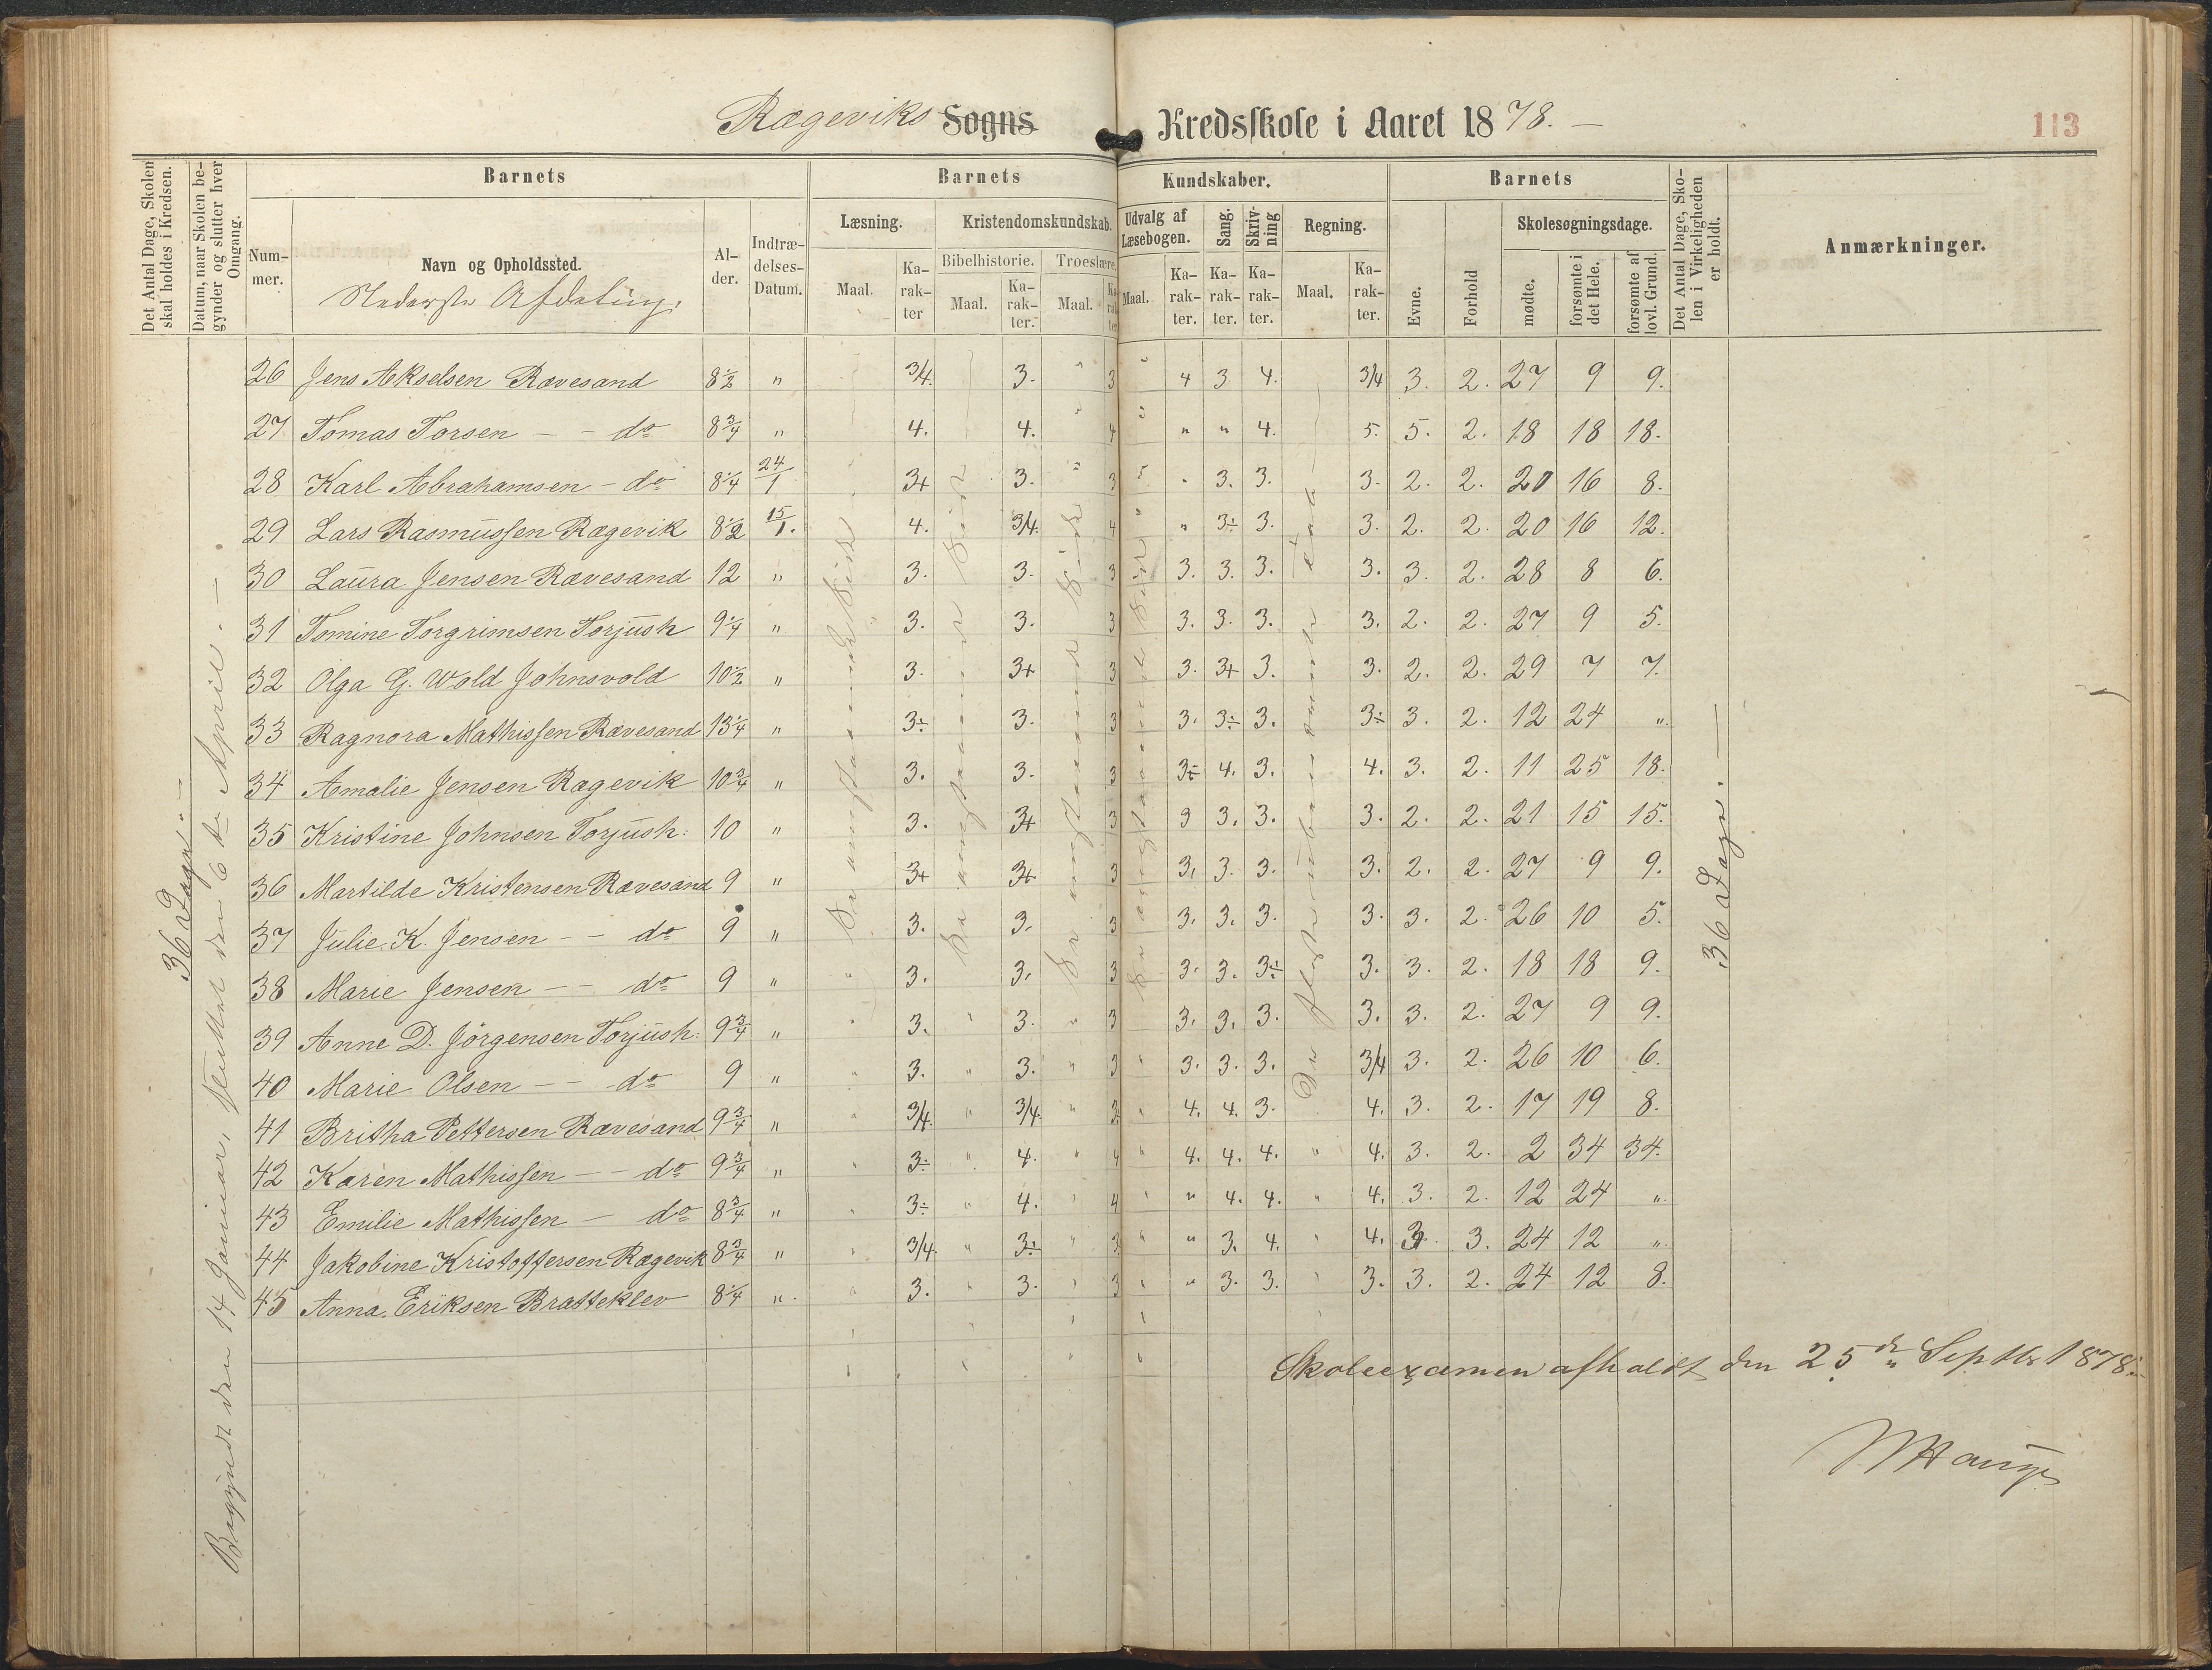 Rægeviks Sogns Kredsskole i Aaret 1878. —
113
Det Antal Dage, Skolen skal holdes i Kredsen.
Datum, naar Skolen begynder og slutter hver Omgang.
Barnets
Barnets Kundskaber.
Barnets
Det Antal Dage, Skolen i Virkeligheden er holdt.
Anmærkninger.
Nummer.
Navn og Opholdssted.
Nederste Afdeling.
Alder.
Indtrædelses-Datum.
Læsning.
Kristendomskundskab.
Udvalg af Læsebogen.
Sang.
Skrivning
Regning.
Evne.
Forhold
Skolesøgningsdage.
Maal.
Karakter
Bibelhistorie.
Maal.
Karakter.
Troeslære.
Maal.
Karakter
Maal.
Karakter.
Karakter.
Karakter.
Maal.
Karakter.
mødte.
forsømte i det Hele.
forsømte af lovl. Grund.
26 Jens Akselsen Rævesand 8½ " 3/4. 3. " 3 " 4 3 4. 3/4 3. 2. 27 9 9.
27 Tomas Torsen — — do 8¾ " 4. 4. " 4 " " " 4. 5. 5. 2. 18 18 18.
28 Karl Abrahamsen — do 8¼ 24/1 3+ 3. " 3 " " 3. 3. 3. 2. 2. 20 16 8.
29 Lars Rasmussen Rægevik 8½ 15/1. 4. 3/4. 4 " " 3÷ 3. 3. 2. 2. 20 16 12.
30 Laura Jensen Rævesand 12 " 3. 3. 3 3. 3. 3. 3. 3. 2. 28 8 6.
31 Tomine Torgrimsen Torjush 9¼ " 3. 3. 3 3. 3. 3. 3. 2. 2. 27 9 5.
32 Olga G. Wold Johnsvold 10½ " 3. 3+ 3 3. 3+ 3. 3. 2. 2. 29 7 7.
33 Ragnora Mathissen Rævesand 13¼ " 3÷ 3. 3 3. 3÷ 3. 3÷ 3. 2. 12 24 "
34 Amalie Jensen Rægevik 10¾ " 3. 3. 3 3÷ 4. 3. 4. 3. 2. 11 25 18.
35 Kristine Johnsen Torjush: 10 " 3. 3+ 3 3 3. 3. 3. 2. 2. 21 15 15.
36 Martilde Kristensen Rævesand 9 " 3+ 3+ 3 3. 3. 3. 3. 2. 2. 27 9 9.
37 Julie K. Jensen — — do 9 " 3. 3. 3 3. 3. 3. 3. 3. 2. 26 10 5.
38 Marie Jensen — — do 9 " " 3. 3. 3 3. 3. 3÷ 3. 3. 2. 18 18 9.
39 Anne D. Jörgensen Torjush: 9¾ " " 3. " 3. " 3 3. 3. 3. 3. 3. 2. 27 9 9.
40 Marie Olsen — — do 9 " " 3. " 3. " 3 " 3. 3. 3. 3/4 3. 2. 26 10 6.
41 Britha Pettersen Rævesand 9¾ " " 3/4. " 3/4. " 3. " 4. 4. 3. 4. 3. 2. 17 19 8.
42 Karen Mathissen — — do 9¾ " " 3÷ " 4. " 4 " 4. 4. 4. " 4. 3. 2. 2 34 34.
43 Emilie Mathissen — do 8¾ " " 3÷ " 4. " 4 " " 4. 4. " 4. 3. 2. 12 24 "
44 Jakobine Kristoffersen Rægevik 8¾ " " 3/4. " 3÷ " 3. " " 3. 4. " 4. 3. 3. 24 12 "
45 Anna Eriksen Bratteklev 8¼ " " 3. " 3. " 3 " " 3. 3. " 3. 3. 2. 24 12 8.
36 Dage. —
Begyndt den 14 Januar, sluttet den 6te April. —
36 Dage. —
Skoleexamen afholdt den 25de Septbr 1878.